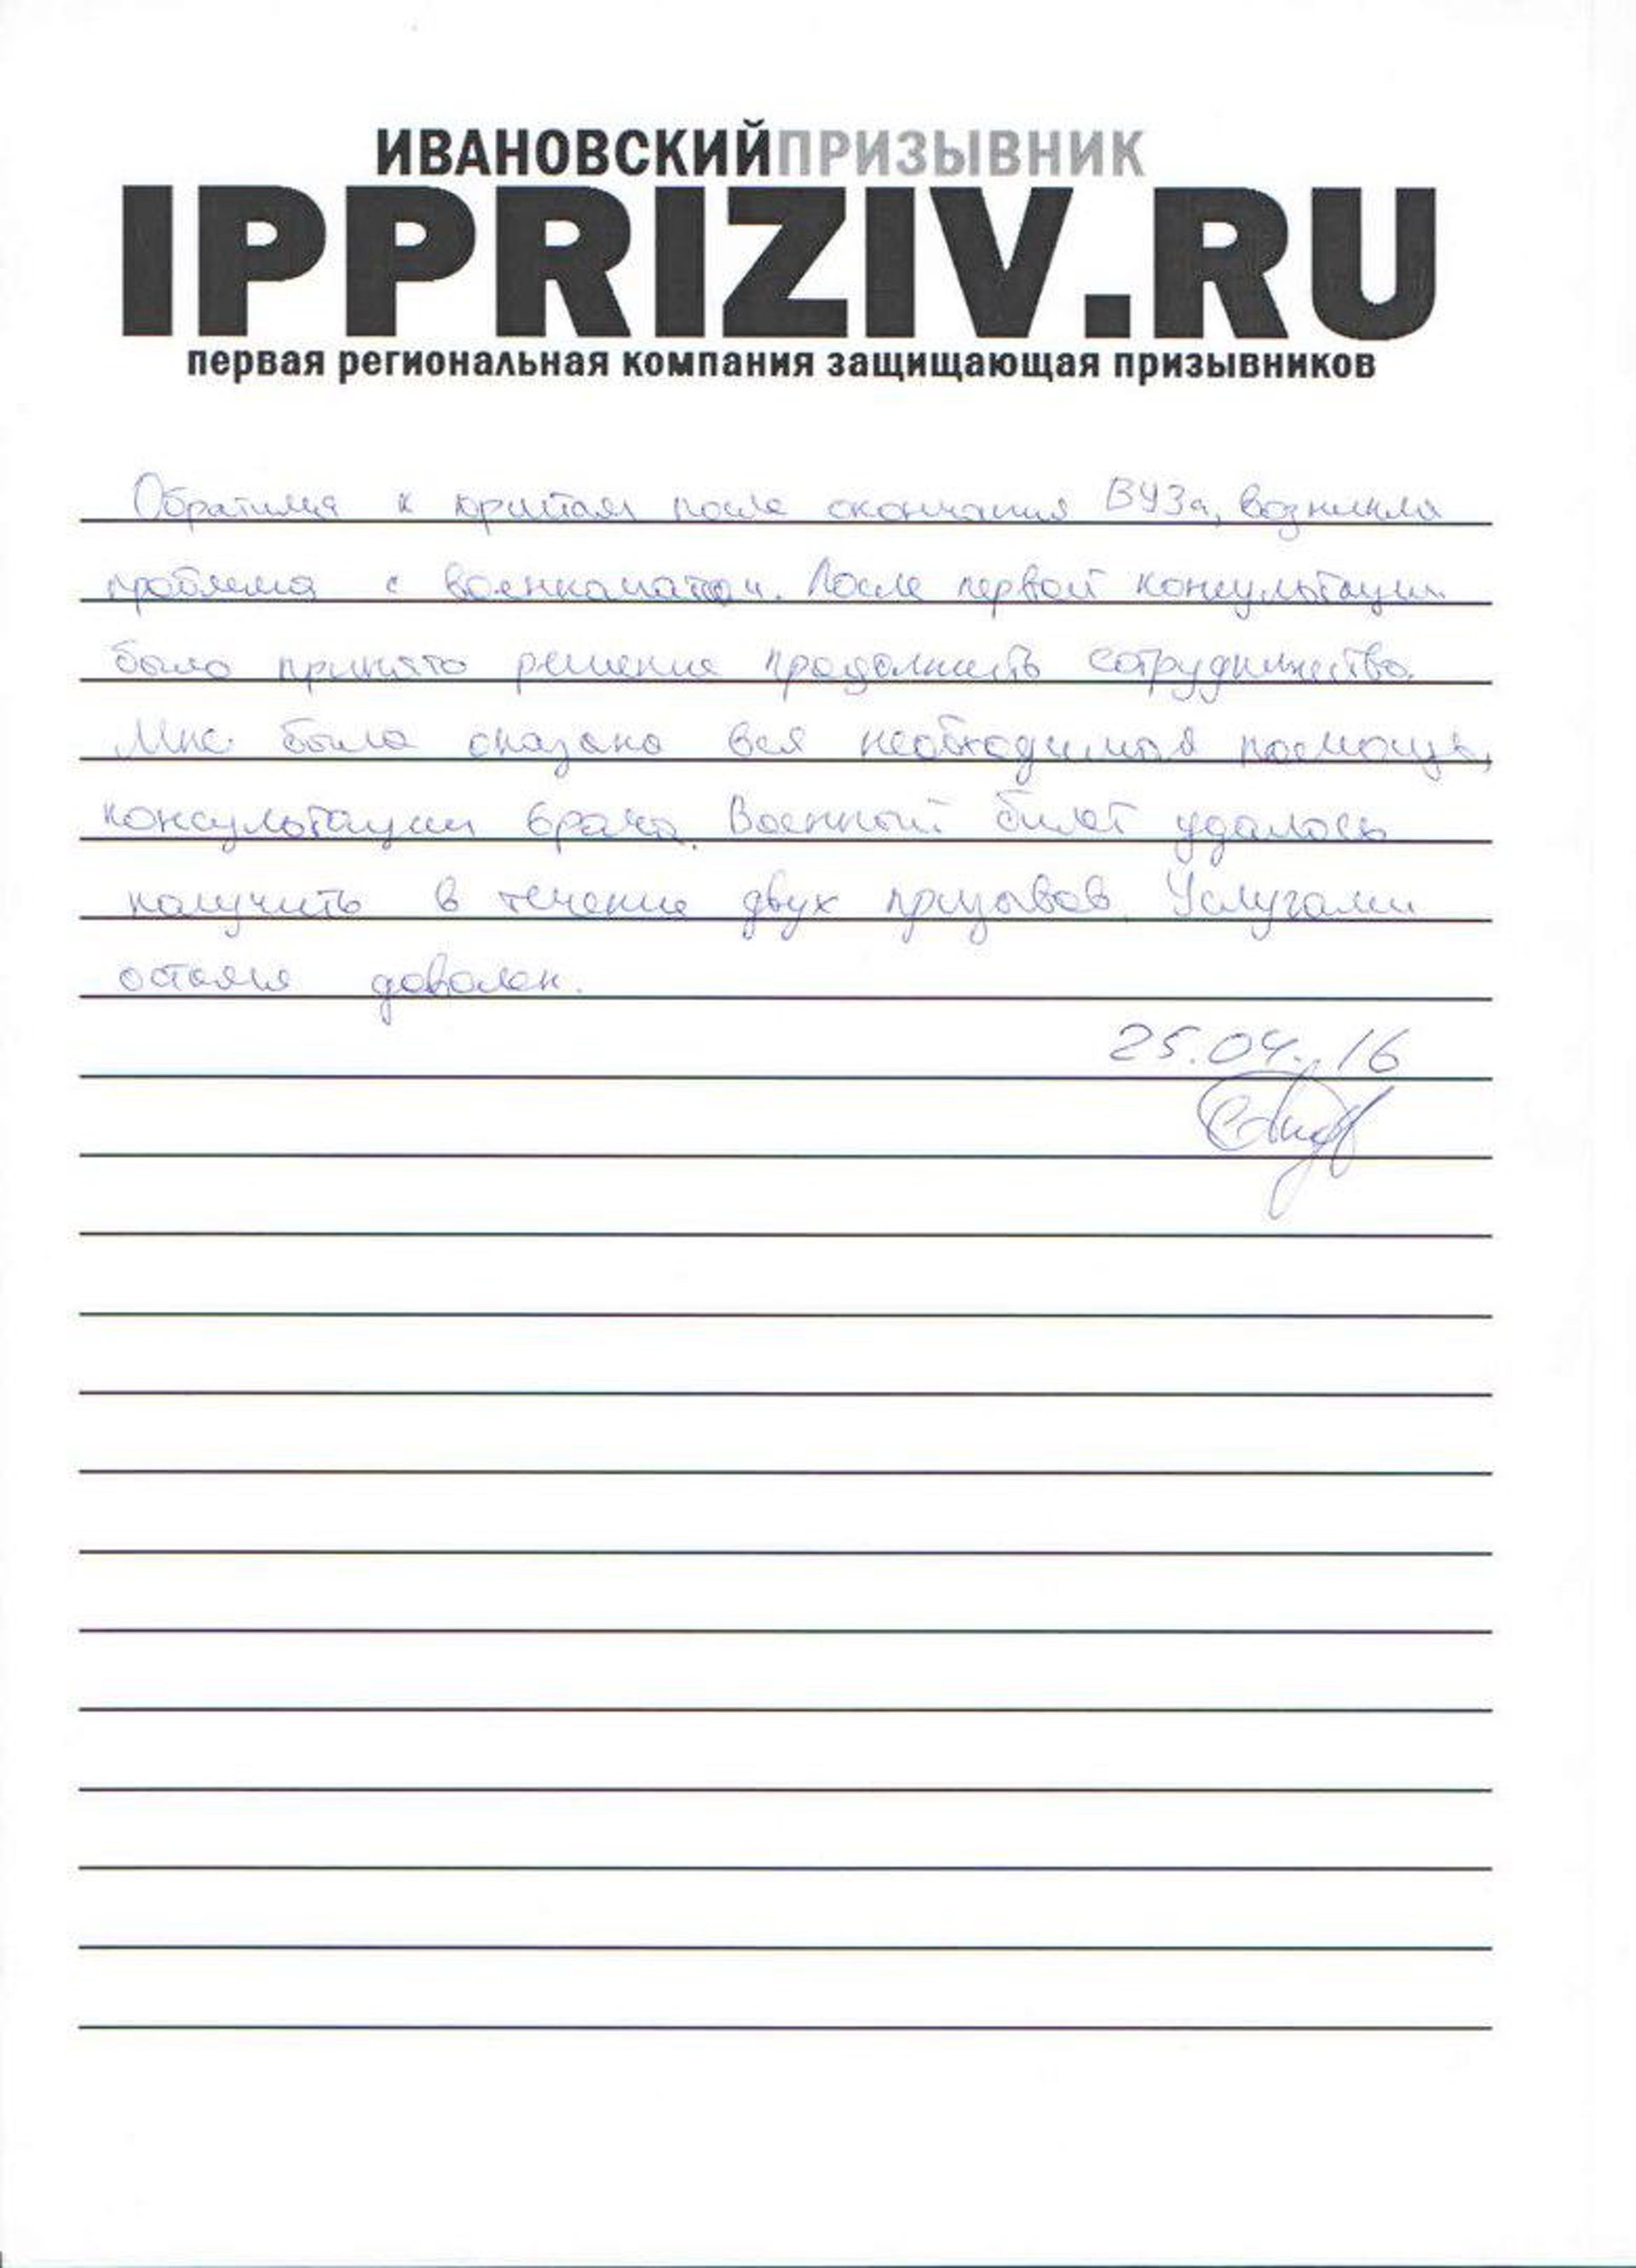 ИВАНОВСКИЙПРИЗЫВНИК
IPPRIZIV.RU
первая региональная компания защищающая призывников
Обратился к юристам после окончания ВУЗа, возникла
проблема с военкоматом. После первой консультации
было принято решение продолжить сотрудничество.
Мне была оказана вся необходимая помощь,
консультации врача. Военный билет удалось
получить в течение двух призывов. Услугами
остался доволен.
25.04.16